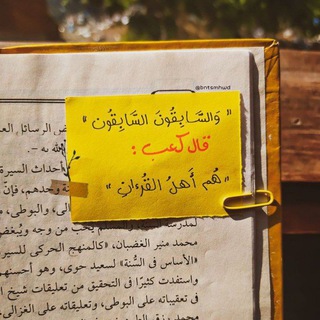 @bntsmhwd
" وَالسَّابِقُونَ السَّابِقُون "
قال كعب :
" هُم أَهلُ القُرءَانِ "
ض الرسائل العـ
الله به . –
أحداث السيرة
وحدهم، فإنّ
لى، والبوطي،
يحب من وجه ويُبغض
محمد منير الغضبان، «كالمنهج الحركي للسيرة
«الأساس في السُّنة» لسعيد حوى، وهو أحسنهم
واستفدت كثيرًا في التحقيق من تعليقات شيخ
في تعقيباته على البوطي، وتعليقاته على الغزالي